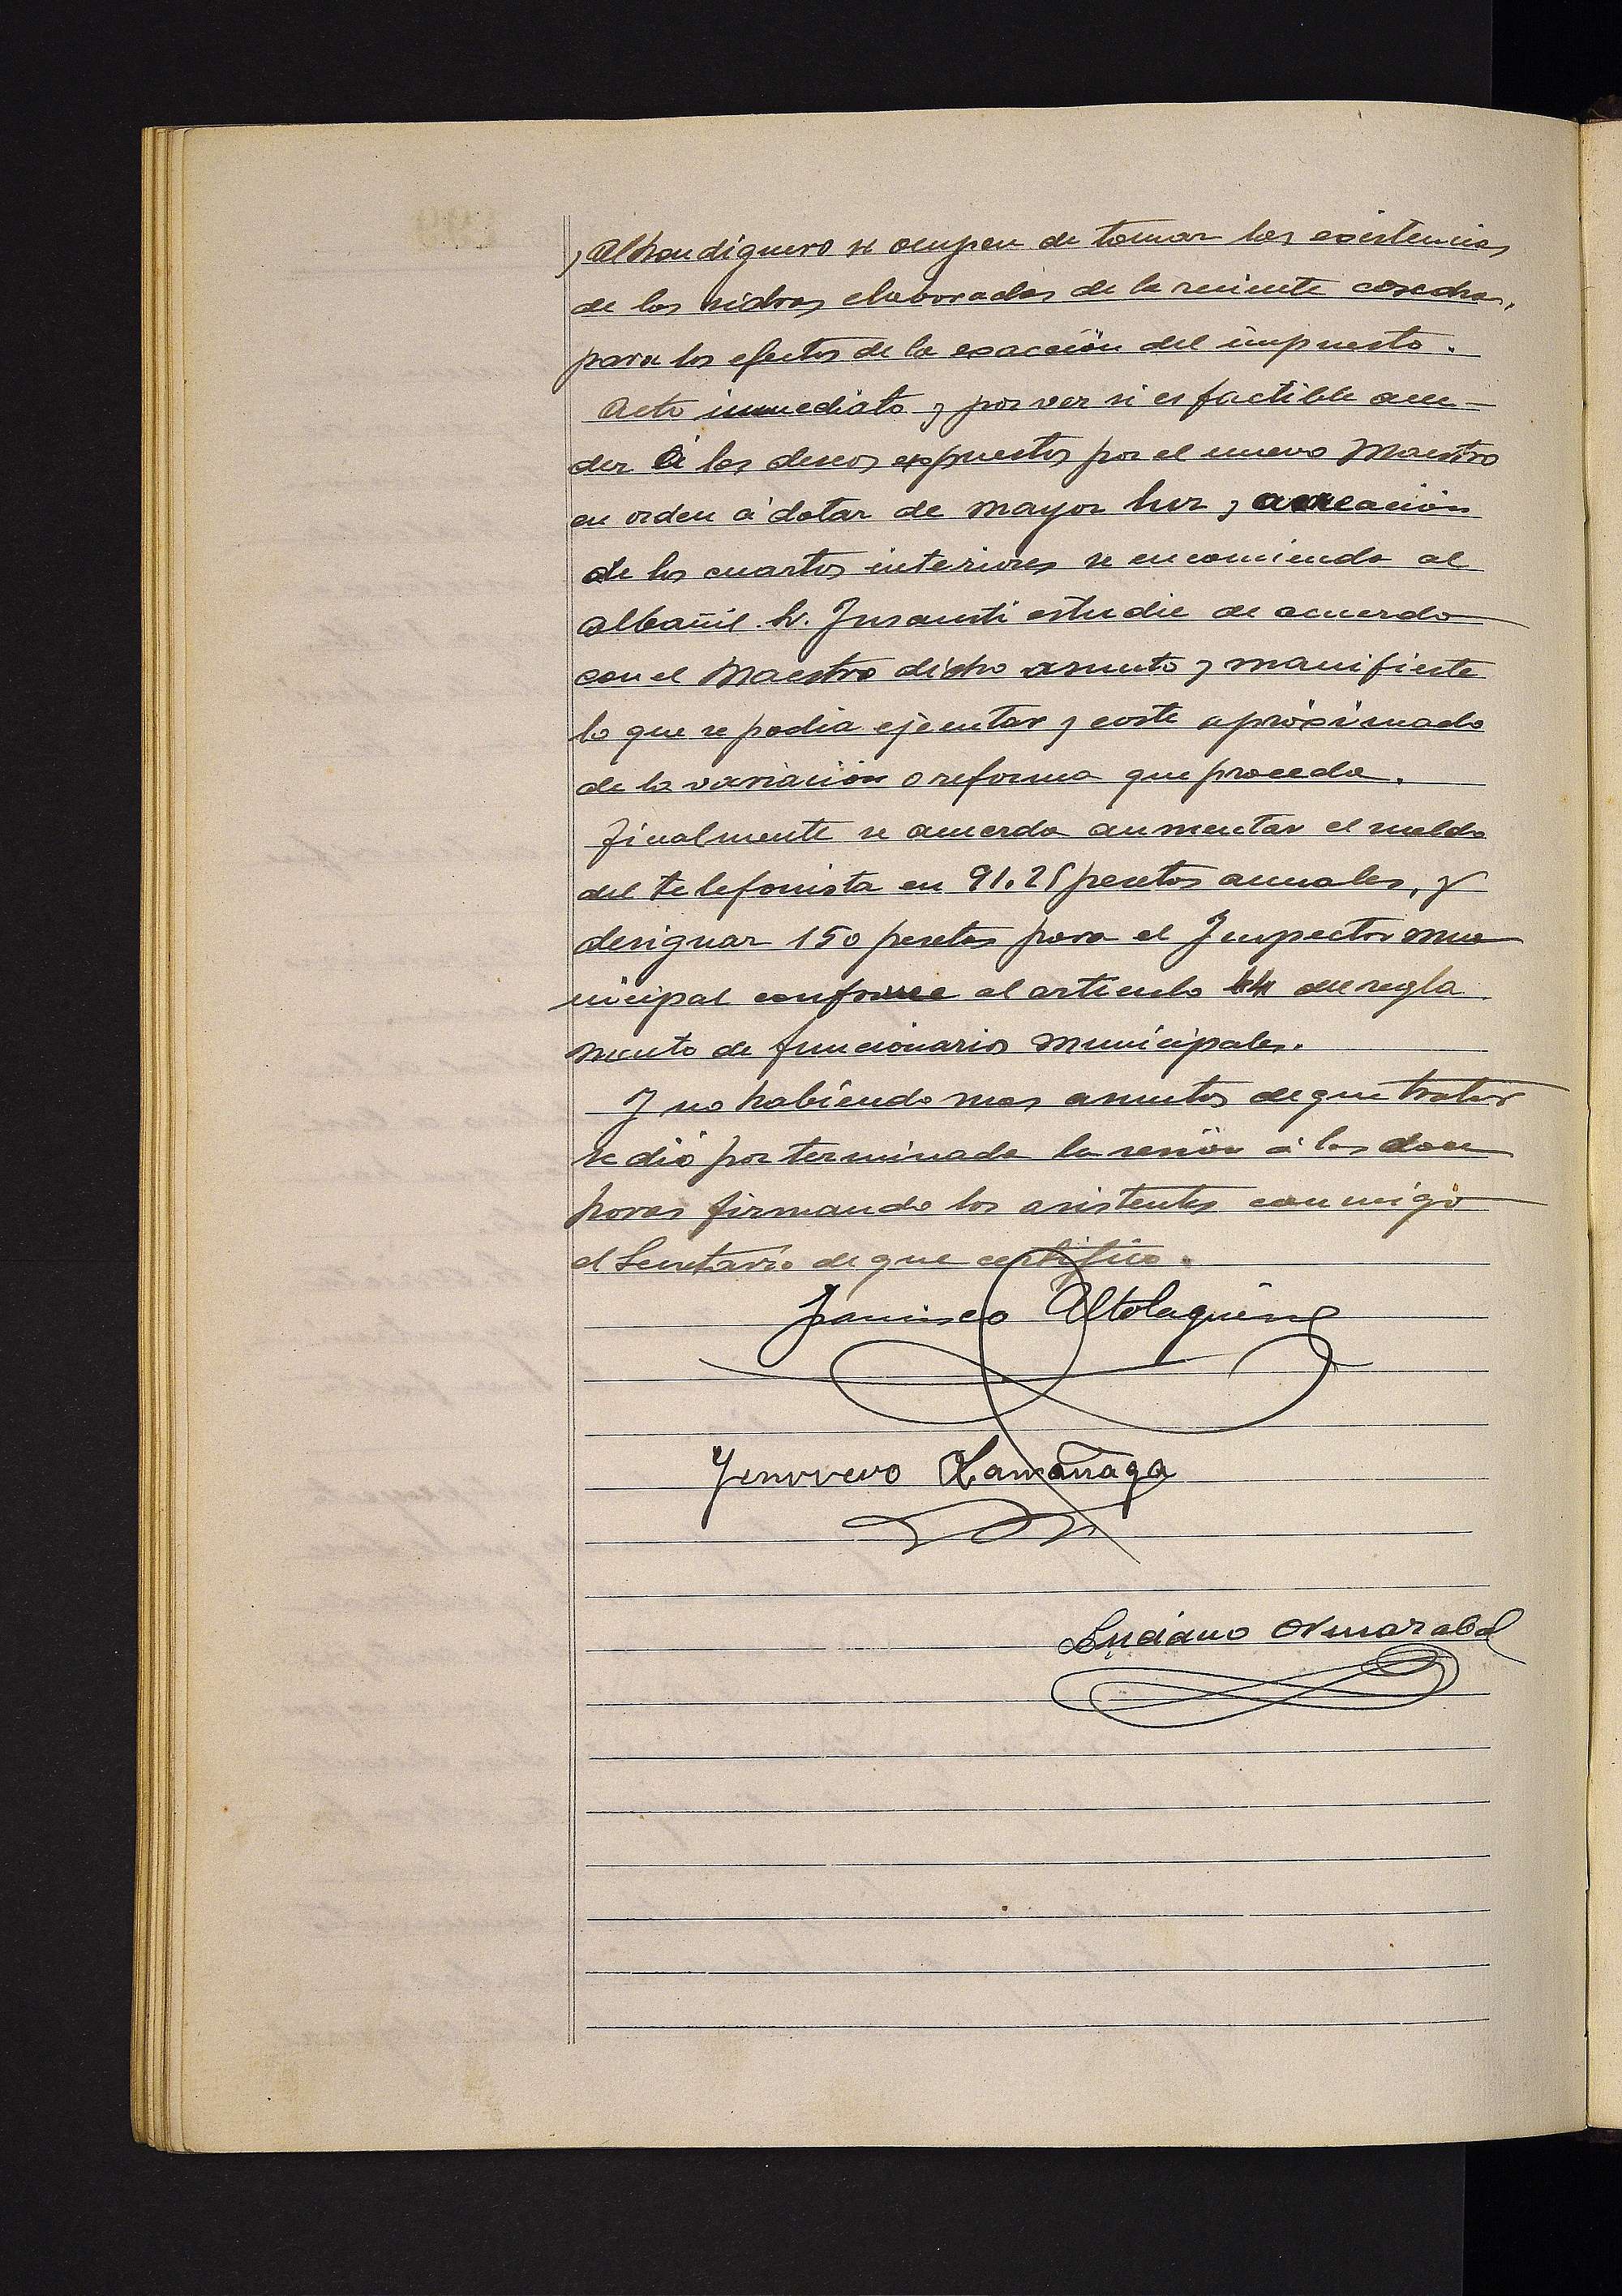 y Alhondiguero se ocupen de tomar las existencias
de las sidras elaboradas de la reciente cosecha,
para los efectos de la exacción del impuesto.
Acto inmediato y por ver si es factible acce-
der á los deseos expuestos por el nuevo Maestro
en orden á dotar de mayor luz y aereación
de los cuartos interiores se encomienda al
albañil Sr. Insausti estudie de acuerdo
con el Maestro dicho asunto y manifieste
lo que se podia ejecutar y coste aproximado
de la variación o reforma que proceda.
Finalmente se acuerda aumentar el sueldo
del telefonista en 91.25 pesetas anuales, y
designar 150 pesetas para el Inspector mu
nicipal conforme al articulo 44 del regla
mento de funcionarios municipales.
Y no habiendo mas asuntos de que tratar
se dió por terminada la sesión á las doce
horas firmando los asistentes conmigo
el Secretario de que certifico.
Francisco Altolaguirre
Larrañaga
Luciano